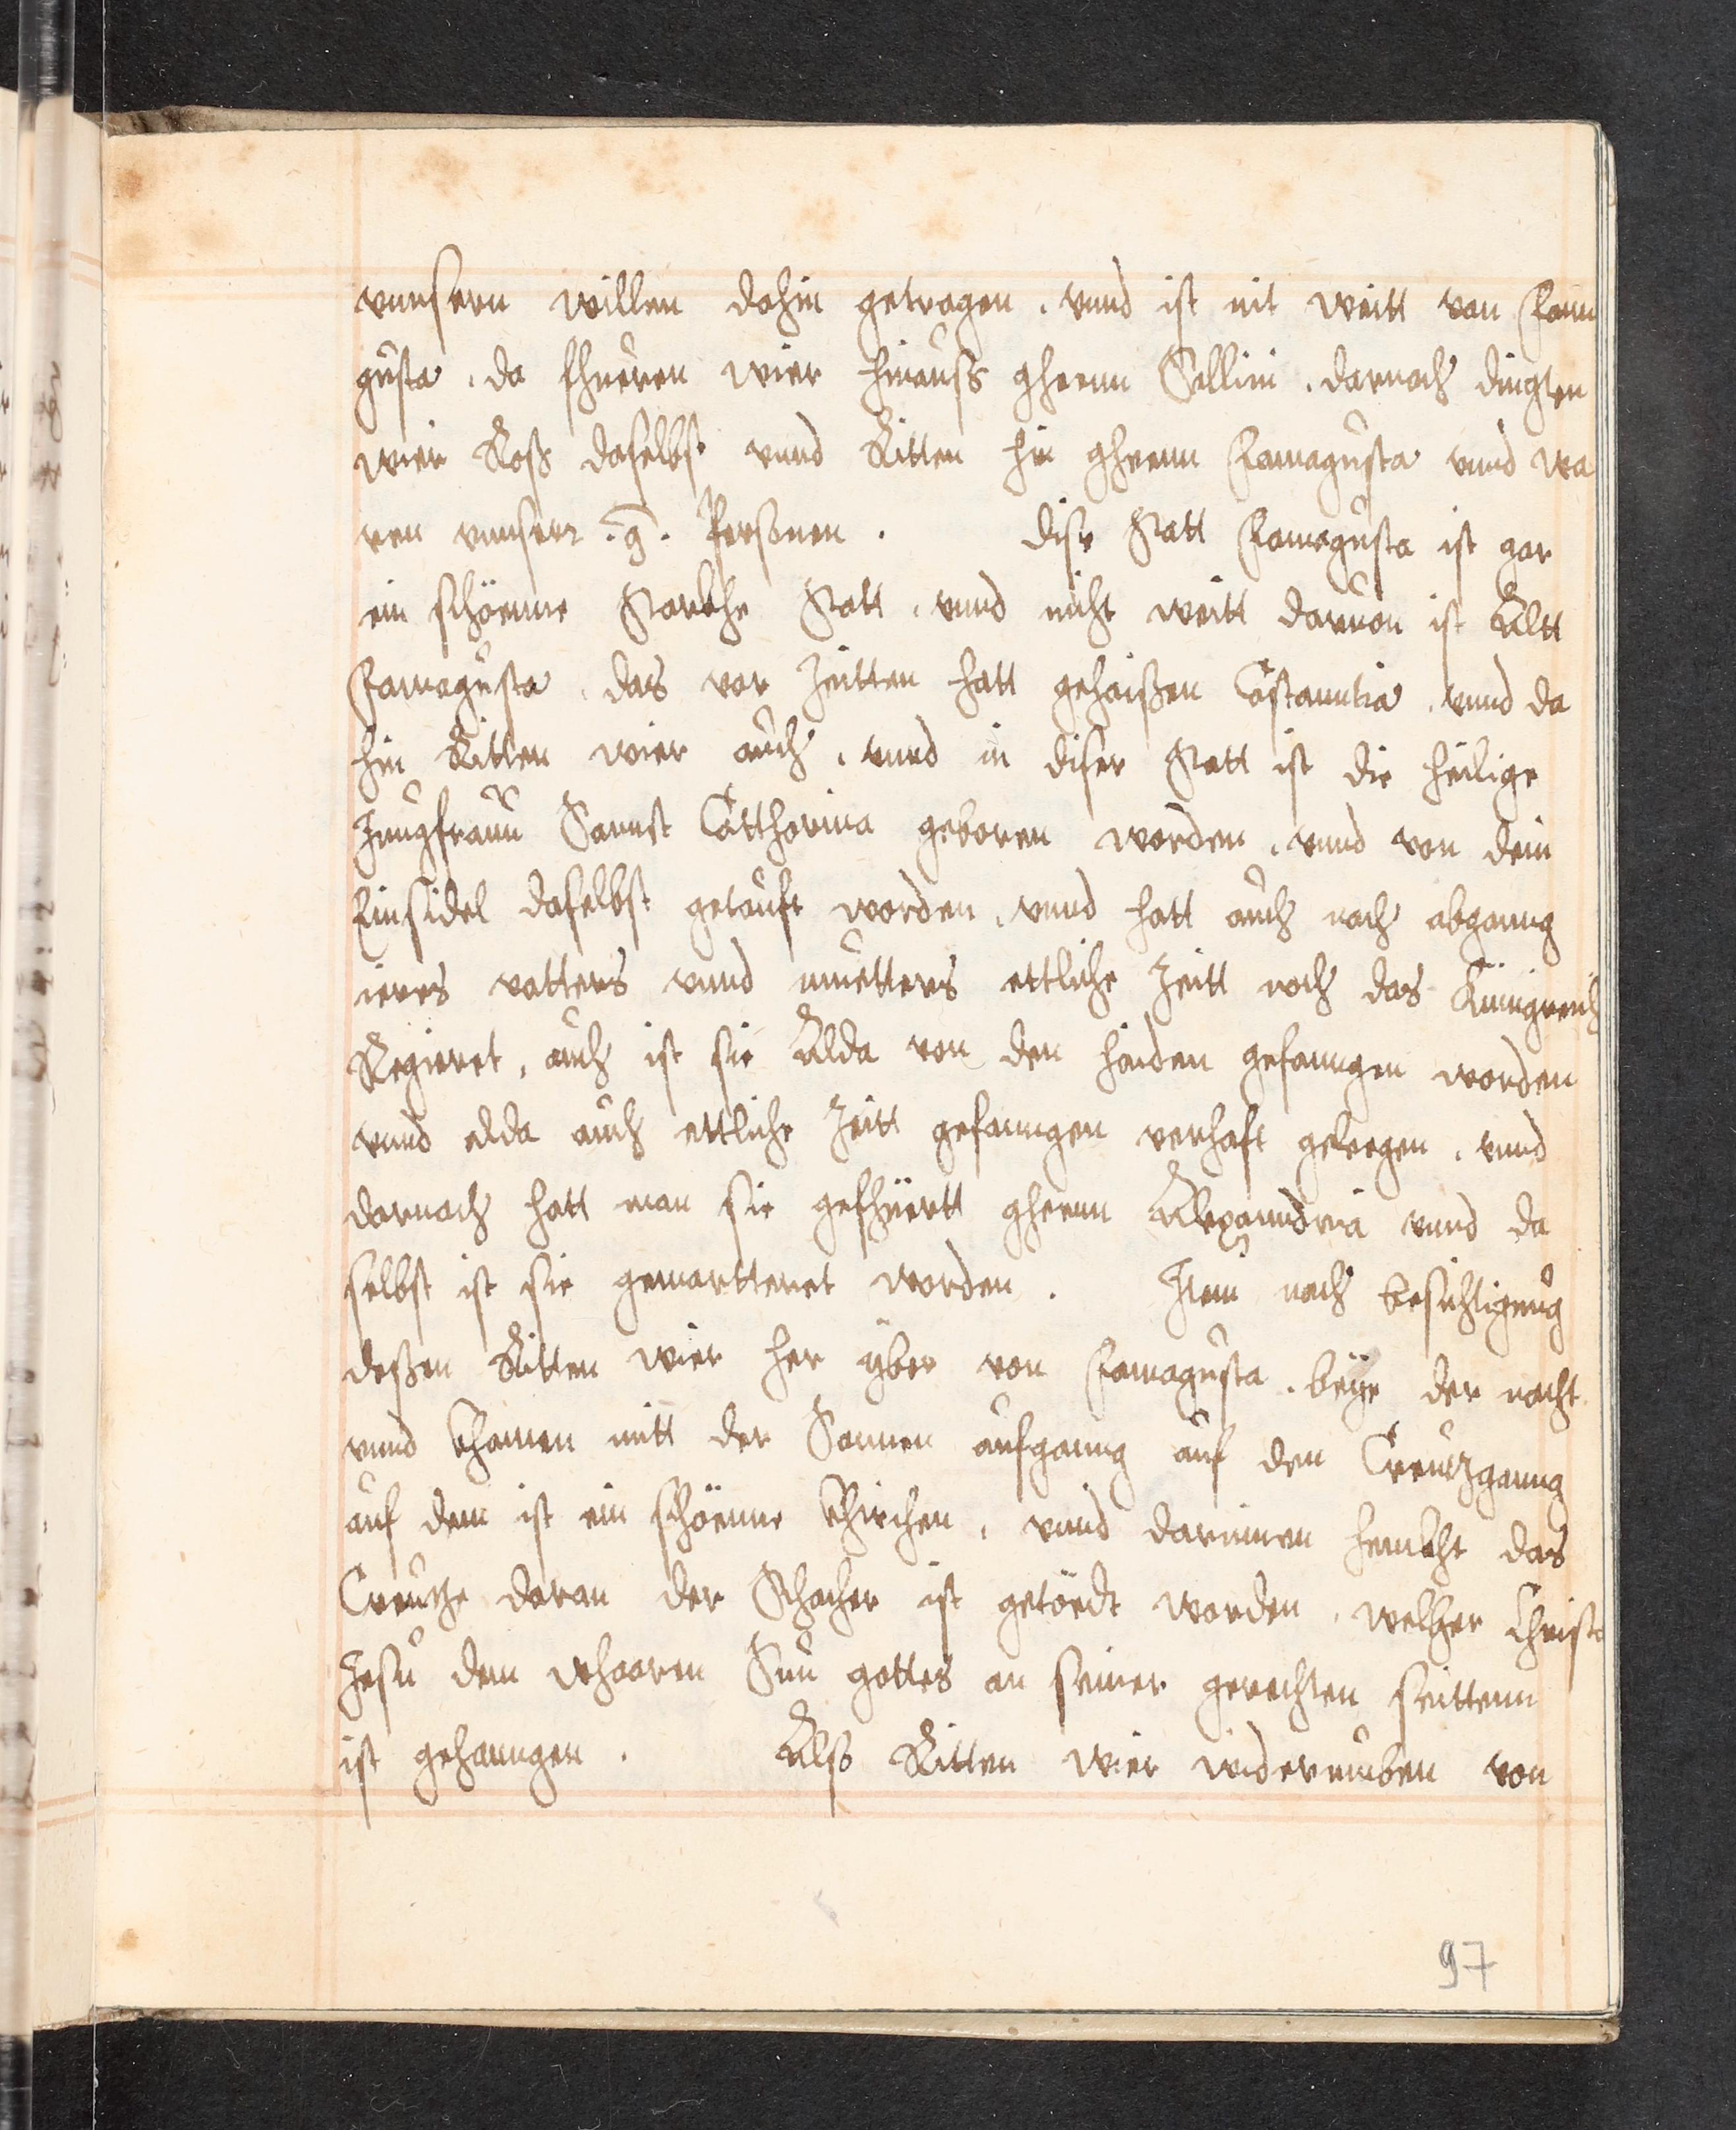 vnnsern willen dahin getragen . vnnd ist nit weitt von Fam
gusta . da fhueren wier hinauss gheenn Sallini . darnach dingten
wier Roß daselbst vnnd Ritten hin gheenn Famagusta vnnd wa
ren vnnser .9. Persßonen . Dise Statt Famagusta ist gar
ein schöenne Starckhe Statt . vnnd nicht weitt daruon ist Altt
Famagusta . das vor Zeitten hatt gehaißen Costanntia . vnnd da
hin Ritten wier auch . vnnd in diser Statt ist die heilige
Jungfrauu Sannct Cattharina geboren worden . vnnd von dem
Einsidel daselbst getauft worden . vnnd hatt auch nach abganng
ieres vatters vnnd muetters ettliche Zeitt noch das Künigreich
Regieret , auch ist sie Alda von den haiden gefanngen worden
vnnd alda auch ettliche Zeitt gefanngen verhaft gelegen . vnnd
darnach hatt man sie gefhüertt gheenn Alexanndria vnnd da
selbst ist sie gemartteret worden . Item nach besichtigung
deßen Ritten wier her yber von Famagusta . beye der nacht
vnnd khamen mitt der Sonnen aufganng auf den Creutzganng
auf dem ist ein schöenne khirchen , vnnd darinnen hennckht das
Creutze daran der Schacher ist getöedt worden . welcher Christo
Jesu dem whaaren Sun gottes an seiner gerechten seittenn
ist gehanngen . Alss Ritten wier widerumben von
97